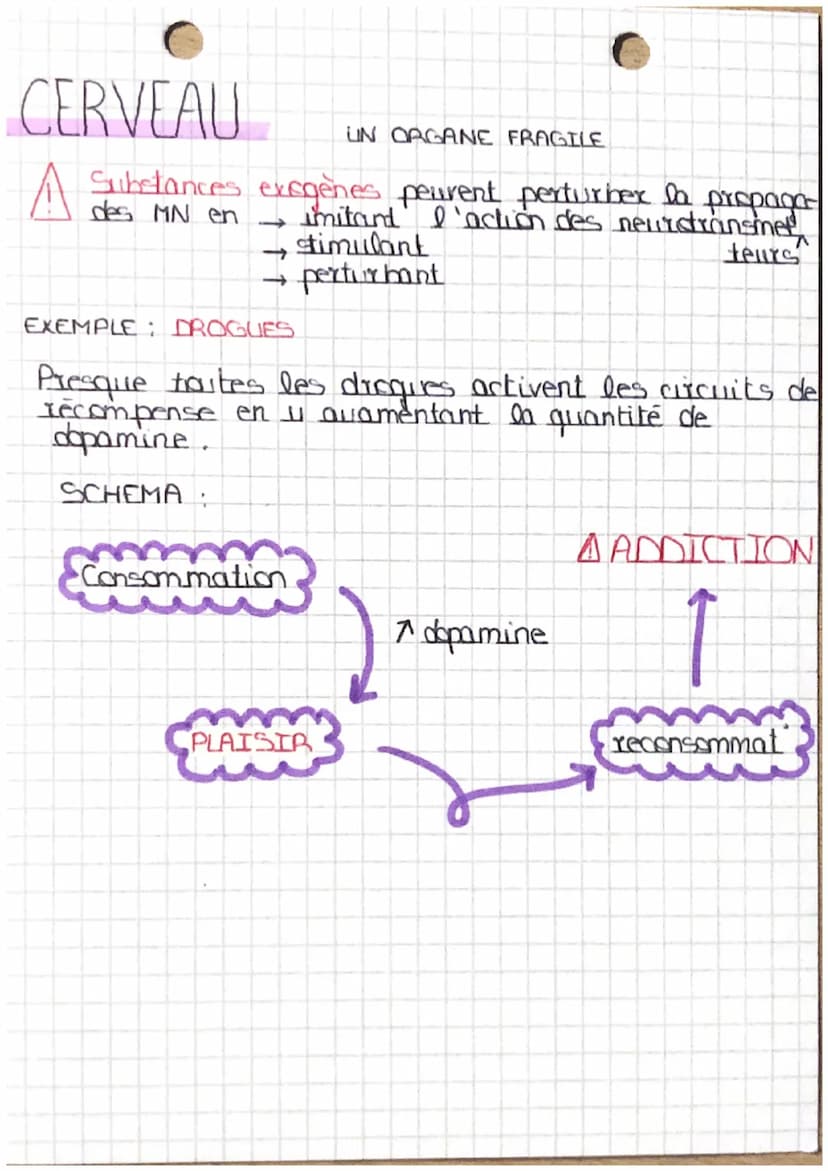 CERVEAU
UN ORGANE FRAGILE
⚠ Substances exogènes peuvent perturber la propaga-
des MN en → imitant l'action des neurotransmet
→ stimulant teurs
→ perturbant
EXEMPLE : DROGUES
Presque toutes les drogues activent les circuits de
récompense en y augmentant la quantité de
dopamine.
SCHEMA :
⚠ ADDICTION
Consommation
↗ dopamine
PLAISIR
reconsommat°